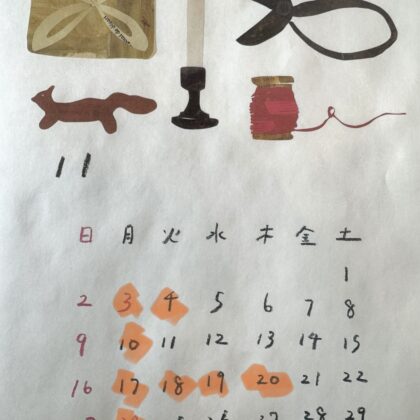 11
日 月 火 水 木 金 土
1
2 3 4 5 6 7 8
9 10 11 12 13 14 15
16 17 18 19 20 21 22